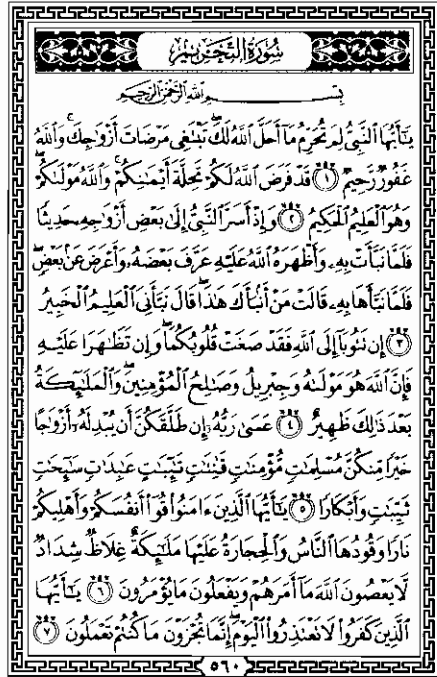 سُورَةُ التَّحْرِيمِ
بِسْمِ اللَّهِ الرَّحْمَٰنِ الرَّحِيمِ
يَٰٓأَيُّهَا ٱلنَّبِىُّ لِمَ تُحَرِّمُ مَآ أَحَلَّ ٱللَّهُ لَكَۖ تَبْتَغِى مَرْضَاتَ أَزْوَٰجِكَۚ وَٱللَّهُ
غَفُورٌ رَّحِيمٌ ١ قَدْ فَرَضَ ٱللَّهُ لَكُمْ تَحِلَّةَ أَيْمَٰنِكُمْۚ وَٱللَّهُ مَوْلَىٰكُمْۖ
وَهُوَ ٱلْعَلِيمُ ٱلْحَكِيمُ ٢ وَإِذْ أَسَرَّ ٱلنَّبِىُّ إِلَىٰ بَعْضِ أَزْوَٰجِهِۦ حَدِيثًا
فَلَمَّا نَبَّأَتْ بِهِۦ وَأَظْهَرَهُ ٱللَّهُ عَلَيْهِ عَرَّفَ بَعْضَهُۥ وَأَعْرَضَ عَنۢ بَعْضٍۖ
فَلَمَّا نَبَّأَهَا بِهِۦ قَالَتْ مَنْ أَنۢبَأَكَ هَٰذَاۖ قَالَ نَبَّأَنِىَ ٱلْعَلِيمُ ٱلْخَبِيرُ
٣ إِن تَتُوبَآ إِلَى ٱللَّهِ فَقَدْ صَغَتْ قُلُوبُكُمَاۖ وَإِن تَظَٰهَرَا عَلَيْهِ
فَإِنَّ ٱللَّهَ هُوَ مَوْلَىٰهُ وَجِبْرِيلُ وَصَٰلِحُ ٱلْمُؤْمِنِينَۖ وَٱلْمَلَٰٓئِكَةُ
بَعْدَ ذَٰلِكَ ظَهِيرٌ ٤ عَسَىٰ رَبُّهُۥٓ إِن طَلَّقَكُنَّ أَن يُبْدِلَهُۥٓ أَزْوَٰجًا
خَيْرًا مِّنكُنَّ مُسْلِمَٰتٍ مُّؤْمِنَٰتٍ قَٰنِتَٰتٍ تَٰٓئِبَٰتٍ عَٰبِدَٰتٍ سَٰٓئِحَٰتٍ
ثَيِّبَٰتٍ وَأَبْكَارًا ٥ يَٰٓأَيُّهَا ٱلَّذِينَ ءَامَنُوا۟ قُوٓا۟ أَنفُسَكُمْ وَأَهْلِيكُمْ
نَارًا وَقُودُهَا ٱلنَّاسُ وَٱلْحِجَارَةُ عَلَيْهَا مَلَٰٓئِكَةٌ غِلَاظٌ شِدَادٌ
لَّا يَعْصُونَ ٱللَّهَ مَآ أَمَرَهُمْ وَيَفْعَلُونَ مَا يُؤْمَرُونَ ٦ يَٰٓأَيُّهَا
ٱلَّذِينَ كَفَرُوا۟ لَا تَعْتَذِرُوا۟ ٱلْيَوْمَۖ إِنَّمَا تُجْزَوْنَ مَا كُنتُمْ تَعْمَلُونَ ٧
٥٦٠